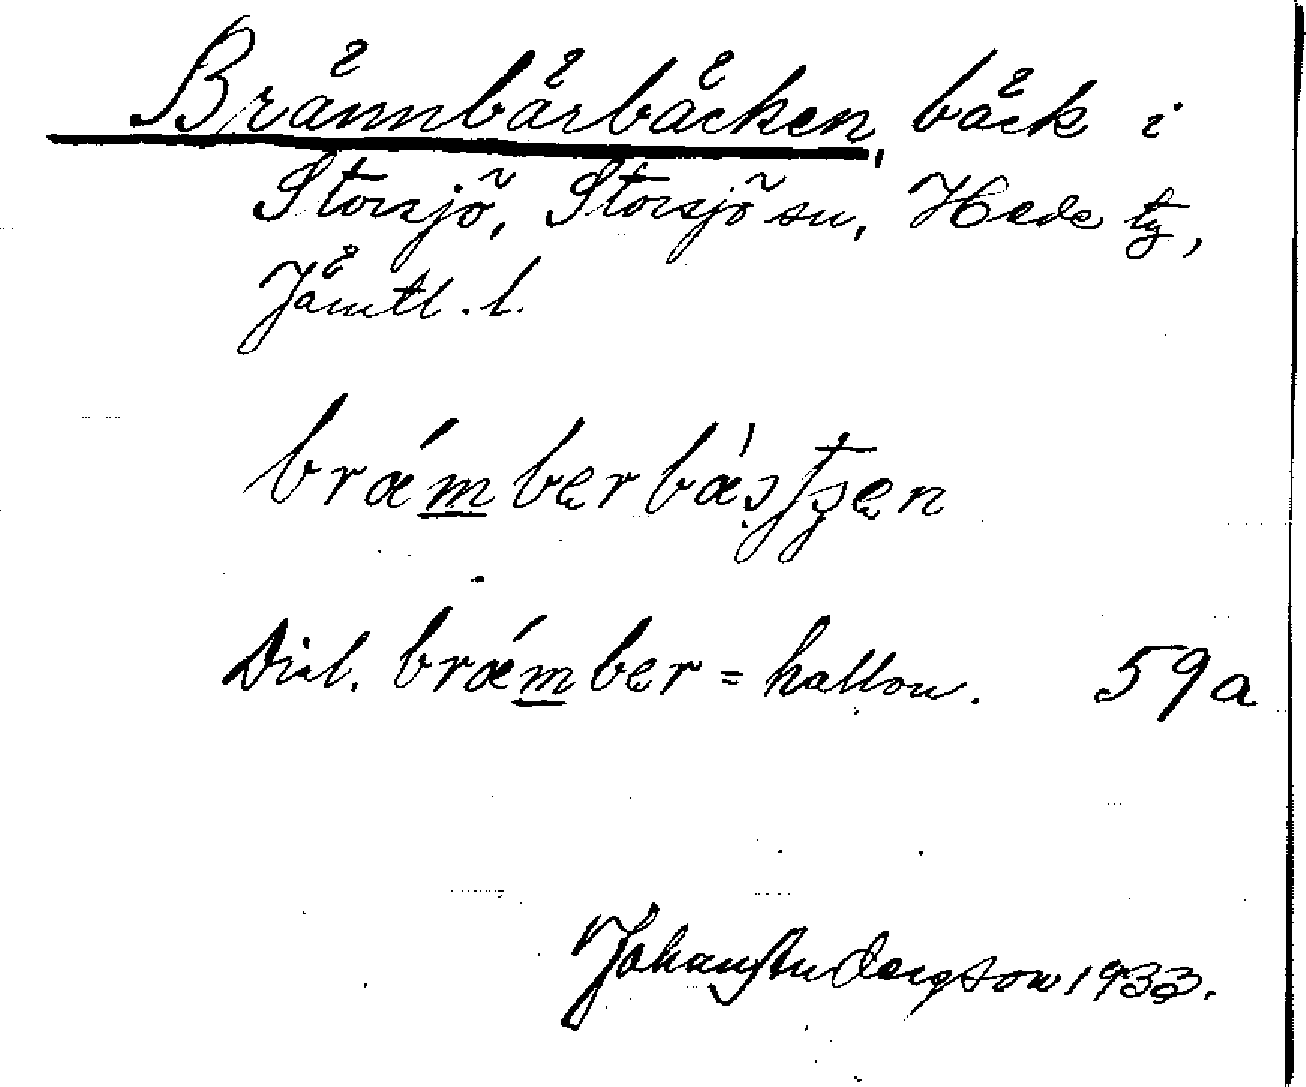 Brännbärbäcken, bäck i
Storsjö, Storsjö sn, Hede tg,
Jämtl. l.
brǽmberbæ̀ʂʃtʂen
Dial. brǽmber = hallon. 59a
Johan Andersson 1933.